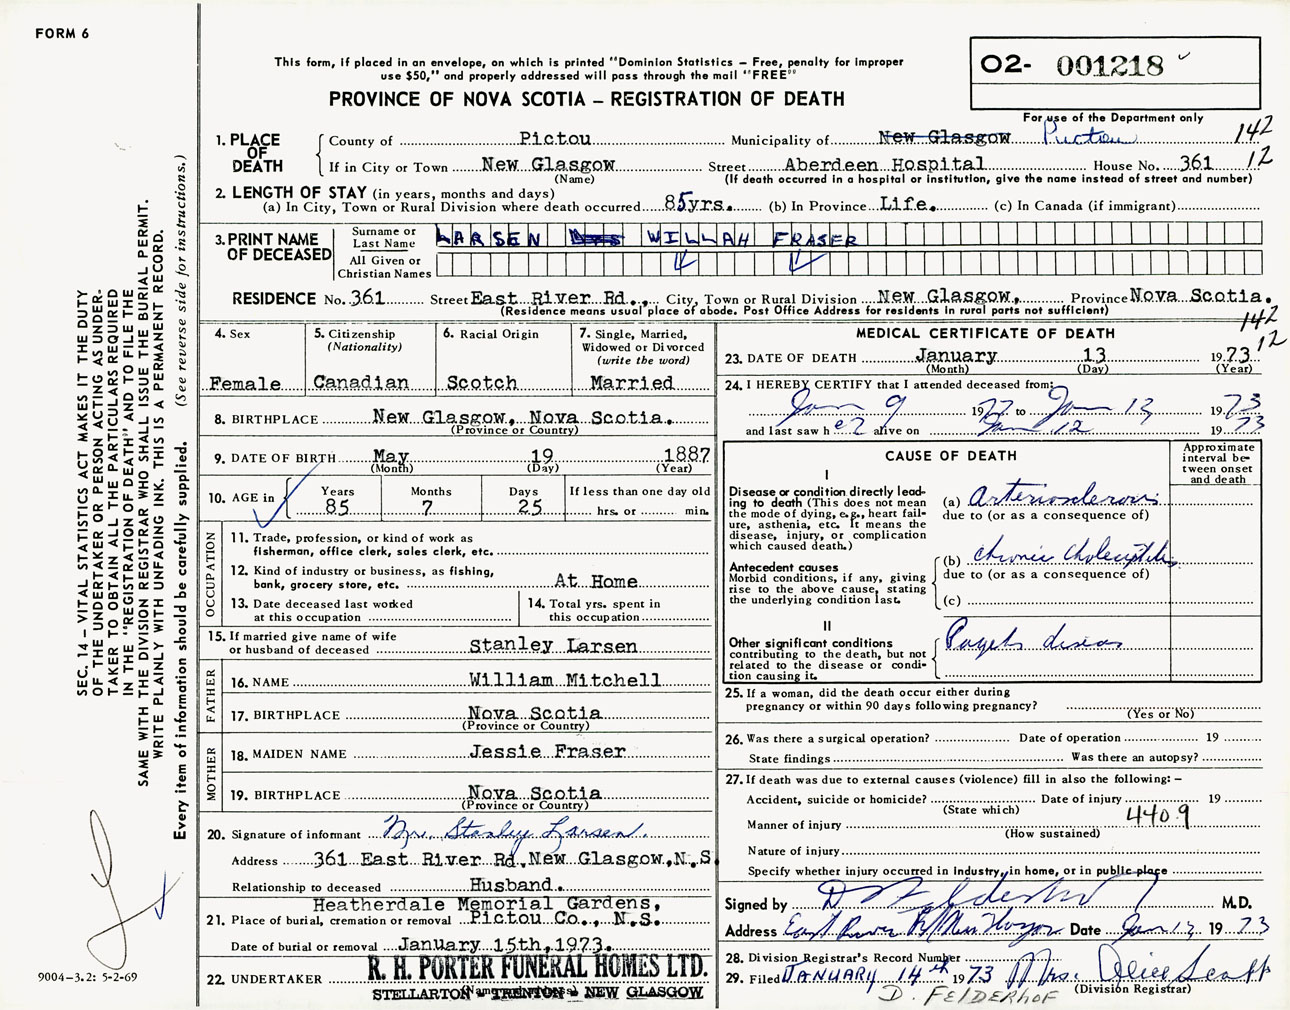 FORM 6
This form, if placed in an envelope, on which is printed "Dominion Statistics – Free, penalty for improper
use $50," and properly addressed will pass through the mail "FREE"
PROVINCE OF NOVA SCOTIA – REGISTRATION OF DEATH
O2- 001218
For use of the Department only
1. PLACE OF DEATH
County of Pictou Municipality of New Glasgow Pictou 142
If in City or Town New Glasgow Street Aberdeen Hospital House No. 361 12
(Name) (If death occurred in a hospital or institution, give the name instead of street and number)
2. LENGTH OF STAY (in years, months and days)
(a) In City, Town or Rural Division where death occurred 85yrs. (b) In Province Life. (c) In Canada (if immigrant)
3. PRINT NAME OF DECEASED
Surname or Last Name LARSEN WILLAH FRASER
All Given or Christian Names
RESIDENCE No. 361 Street East River Rd., City, Town or Rural Division New Glasgow, Province Nova Scotia.
(Residence means usual place of abode. Post Office Address for residents in rural parts not sufficient)
142
12
4. Sex
Female
5. Citizenship
(Nationality)
Canadian
6. Racial Origin
Scotch
7. Single, Married,
Widowed or Divorced
(write the word)
Married
8. BIRTHPLACE New Glasgow, Nova Scotia.
(Province or Country)
9. DATE OF BIRTH May 19 1887
(Month) (Day) (Year)
10. AGE in
Years Months Days If less than one day old
85 7 25 hrs. or min.
OCCUPATION
11. Trade, profession, or kind of work as
fisherman, office clerk, sales clerk, etc.
12. Kind of industry or business, as fishing,
bank, grocery store, etc. At Home
13. Date deceased last worked
at this occupation
14. Total yrs. spent in
this occupation
15. If married give name of wife
or husband of deceased Stanley Larsen
FATHER
16. NAME William Mitchell
17. BIRTHPLACE Nova Scotia
(Province or Country)
MOTHER
18. MAIDEN NAME Jessie Fraser
19. BIRTHPLACE Nova Scotia
(Province or Country)
20. Signature of informant Mr. Stanley Larsen.
Address 361 East River Rd, New Glasgow, N.S
Relationship to deceased Husband.
Heatherdale Memorial Gardens,
21. Place of burial, cremation or removal Pictou Co., N.S.
Date of burial or removal January 15th, 1973.
22. UNDERTAKER R. H. PORTER FUNERAL HOMES LTD.
STELLARTON - TRENTON - NEW GLASGOW
MEDICAL CERTIFICATE OF DEATH
23. DATE OF DEATH January 13 1973
(Month) (Day) (Year)
24. I HEREBY CERTIFY that I attended deceased from:
Jan 9 19 to Jan 13 1973
and last saw her alive on Jan 12 1973
CAUSE OF DEATH
Approximate
interval be-
tween onset
and death
I
Disease or condition directly lead-
ing to death (This does not mean
the mode of dying, e.g., heart fail-
ure, asthenia, etc. It means the
disease, injury, or complication
which caused death.)
(a) Arteriosclerosis
due to (or as a consequence of)
Antecedent causes
Morbid conditions, if any, giving
rise to the above cause, stating
the underlying condition last.
(b) chronic cholecystitis
due to (or as a consequence of)
(c)
II
Other significant conditions
contributing to the death, but not
related to the disease or condi-
tion causing it.
Pagets disease
25. If a woman, did the death occur either during
pregnancy or within 90 days following pregnancy?
(Yes or No)
26. Was there a surgical operation? Date of operation 19
State findings Was there an autopsy?
27. If death was due to external causes (violence) fill in also the following: –
Accident, suicide or homicide? Date of injury 19
(State which)
Manner of injury 4409
(How sustained)
Nature of injury
Specify whether injury occurred in industry, in home, or in public place
Signed by D Felderhof M.D.
Address East River Rd New Glasgow Date Jan 13 1973
28. Division Registrar's Record Number
29. Filed JANUARY 14th 1973 Mrs. Alice Scott
(Division Registrar)
D. FELDERHOF
SEC. 14 – VITAL STATISTICS ACT MAKES IT THE DUTY
OF THE UNDERTAKER OR PERSON ACTING AS UNDER-
TAKER TO OBTAIN ALL THE PARTICULARS REQUIRED
IN THE "REGISTRATION OF DEATH" AND TO FILE THE
SAME WITH THE DIVISION REGISTRAR WHO SHALL ISSUE THE BURIAL PERMIT.
WRITE PLAINLY WITH UNFADING INK. THIS IS A PERMANENT RECORD.
Every item of information should be carefully supplied. (See reverse side for instructions.)
9004-3.2: 5-2-69